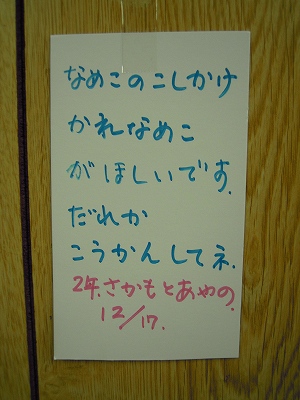 なめこのこしかけ
かれなめこ
がほしいです.
だれか
こうかんしてネ.
2年.さかもとあやの.
12/17.